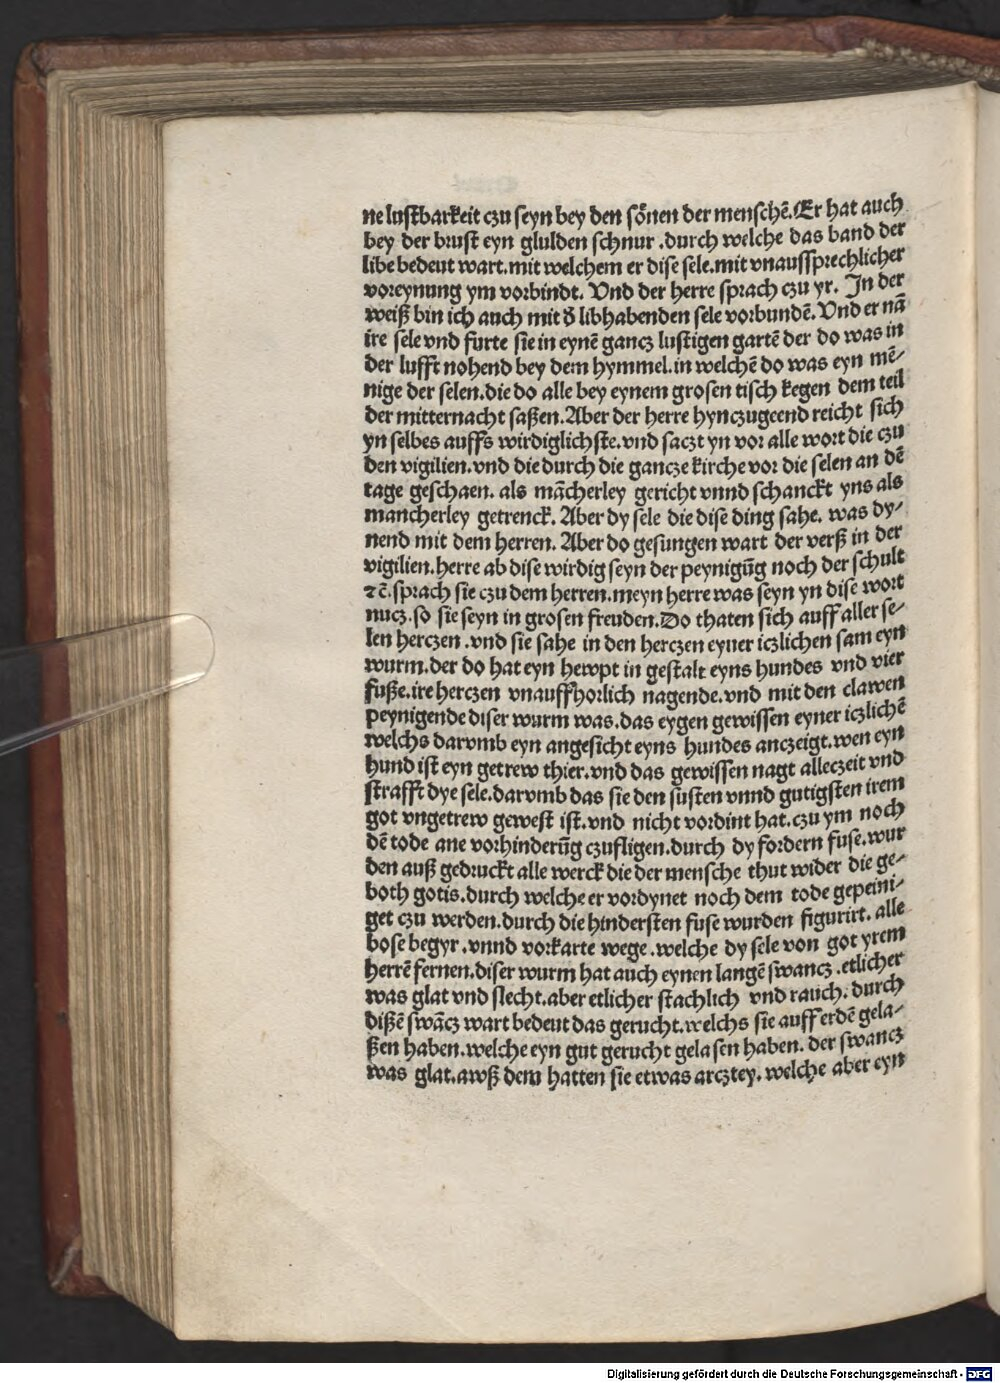 ne lustbarkeit czu seyn bey den sönen der menschē. Er hat auch
bey der brust eyn glulden schnur .durch welche das band der
libe bedeut wart. mit welchem er dise sele. mit vnaussprechlicher
voreynung ym vorbindt. Vnd der herre sprach czu yr. In der
weiß bin ich auch mit d̕ libhabenden sele vorbundē. Vnd er nā
ire sele vnd furte sie in eynē gancz lustigen gartē der do was in
der lufft nohend bey dem hymmel. in welchē do was eyn mē-
nige der selen. die do alle bey eynem grosen tisch kegen dem teil
der mitternacht saßen. Aber der herre hynczugeend reicht sich
yn selbes auffs wirdiglichste. vnd saczt yn vor alle wort die czu
den vigilien. vnd die durch die gancze kirche vor die selen an dē
tage geschaen. als mācherley gericht vnnd schanckt yns als
mancherley getrenck. Aber dy sele die dise ding sahe. was dy-
nend mit dem herren. Aber do gesungen wart der verß in der
vigilien. herre ab dise wirdig seyn der peynigūg noch der schult
⁊c̄. sprach sie czu dem herren. meyn herre was seyn yn dise wort
nucz. so sie seyn in grosen freuden. Do thaten sich auff aller se-
len herczen .vnd sie sahe in den herczen eyner iczlichen sam eyn
wurm. der do hat eyn hewpt in gestalt eyns hundes vnd vier
fuße. ire herczen vnauffhorlich nagende. vnd mit den clawen
peynigende diser wurm was. das eygen gewissen eyner iczlichē
welchs darvmb eyn angesicht eyns hundes anczeigt. wen eyn
hund ist eyn getrew thier. vnd das gewissen nagt alleczeit vnd
strafft dye sele. darvmb das sie den susten vnnd gutigsten irem
got vngetrew gewest ist. vnd nicht vordint hat. czu ym noch
dē tode ane vorhinderūg czufligen. durch dy fordern fuse. wur
den auß gedruckt alle werck die der mensche thut wider die ge-
both gotis. durch welche er vordynet noch dem tode gepeini-
get czu werden. durch die hindersten fuse wurden figurirt. alle
bose begyr .vnnd vorkarte wege .welche dy sele von got yrem
herrē fernen. diser wurm hat auch eynen langē swancz .etlicher
was glat vnd slecht. aber etlicher stachlich vnd rauch. durch
dißē swācz wart bedeut das gerucht. welchs sie auff erdē gela-
ßen haben. welche eyn gut gerucht gelasen haben. der swancz
was glat. awß dem hatten sie etwas arcztey. welche aber eyn
Digitalisierung gefördert durch die Deutsche Forschungsgemeinschaft - DFG